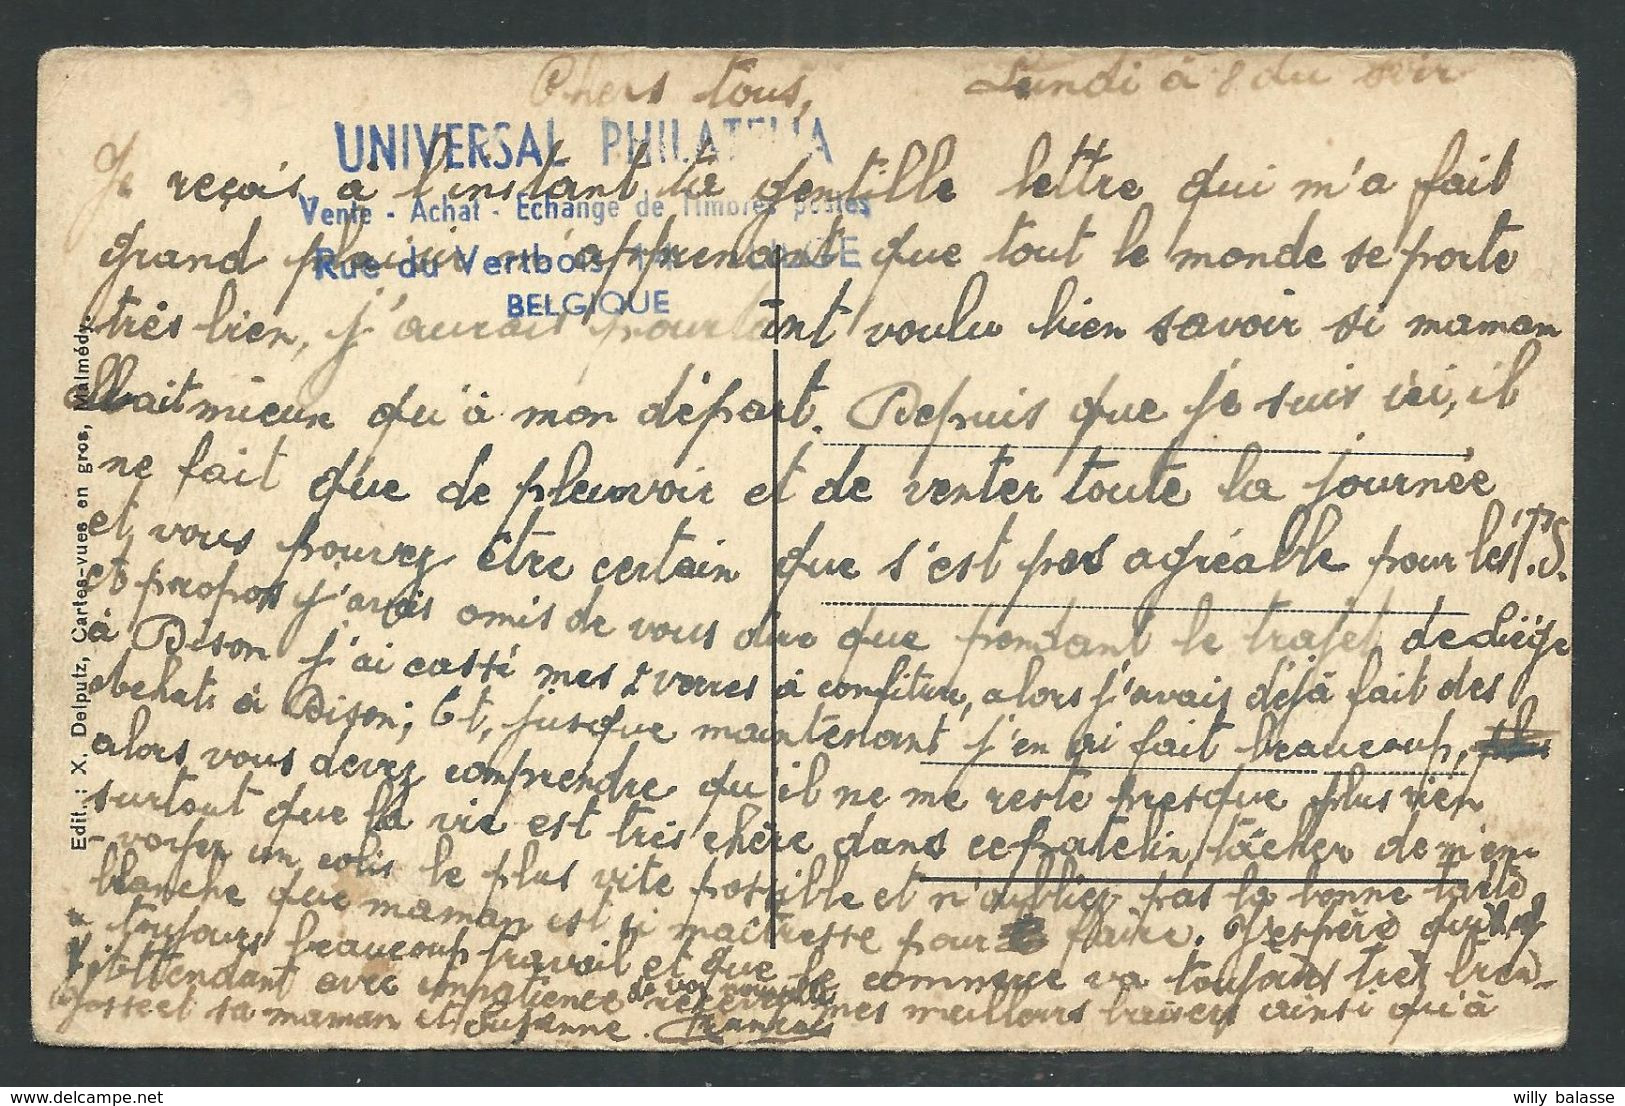 Chers tous, Lundi à 8 du soir
UNIVERSAL PHILATELIA
Je reçois à l'instant ta gentille lettre qui m'a fait
Vente - Achat - Echange de Timbres postes
grand plaisir m'apprenant que tout le monde se porte
Rue du Vertbois
BELGIQUE
très bien, j'aurais pourtant voulu bien savoir si maman
allait mieux qu'à mon départ. Depuis que je suis ici, il
ne fait que de pleuvoir et de venter toute la journée
et, vous pouvez être certain que s'est pas agréable pour les T.S.
et à propos j'avais omis de vous dire que pendant le trajet de Liége
à Bison j'ai cassé mes 2 verres à confiture, alors j'avais déjà fait des
achats à Bison; Et, jusque maintenant j'en ai fait beaucoup,
alors vous devez comprendre qu'il ne me reste presque plus rien
surtout que la vie est très chère dans ce patelin, tâcher de m'en-
-voyer un colis le plus vite possible et n'oubliez pas la bonne tarte
blanche que maman est si maîtresse pour faire. J'espère
toujours beaucoup travail et que le commerce va toujours très bien-
Attendant avec impatience de vos nouvelles recevez mes meilleurs baisers ainsi qu'à
et sa maman et Suzanne. François
Edit. : X. Delputz, Cartes-vues en gros, Malmédy.
willy balasse